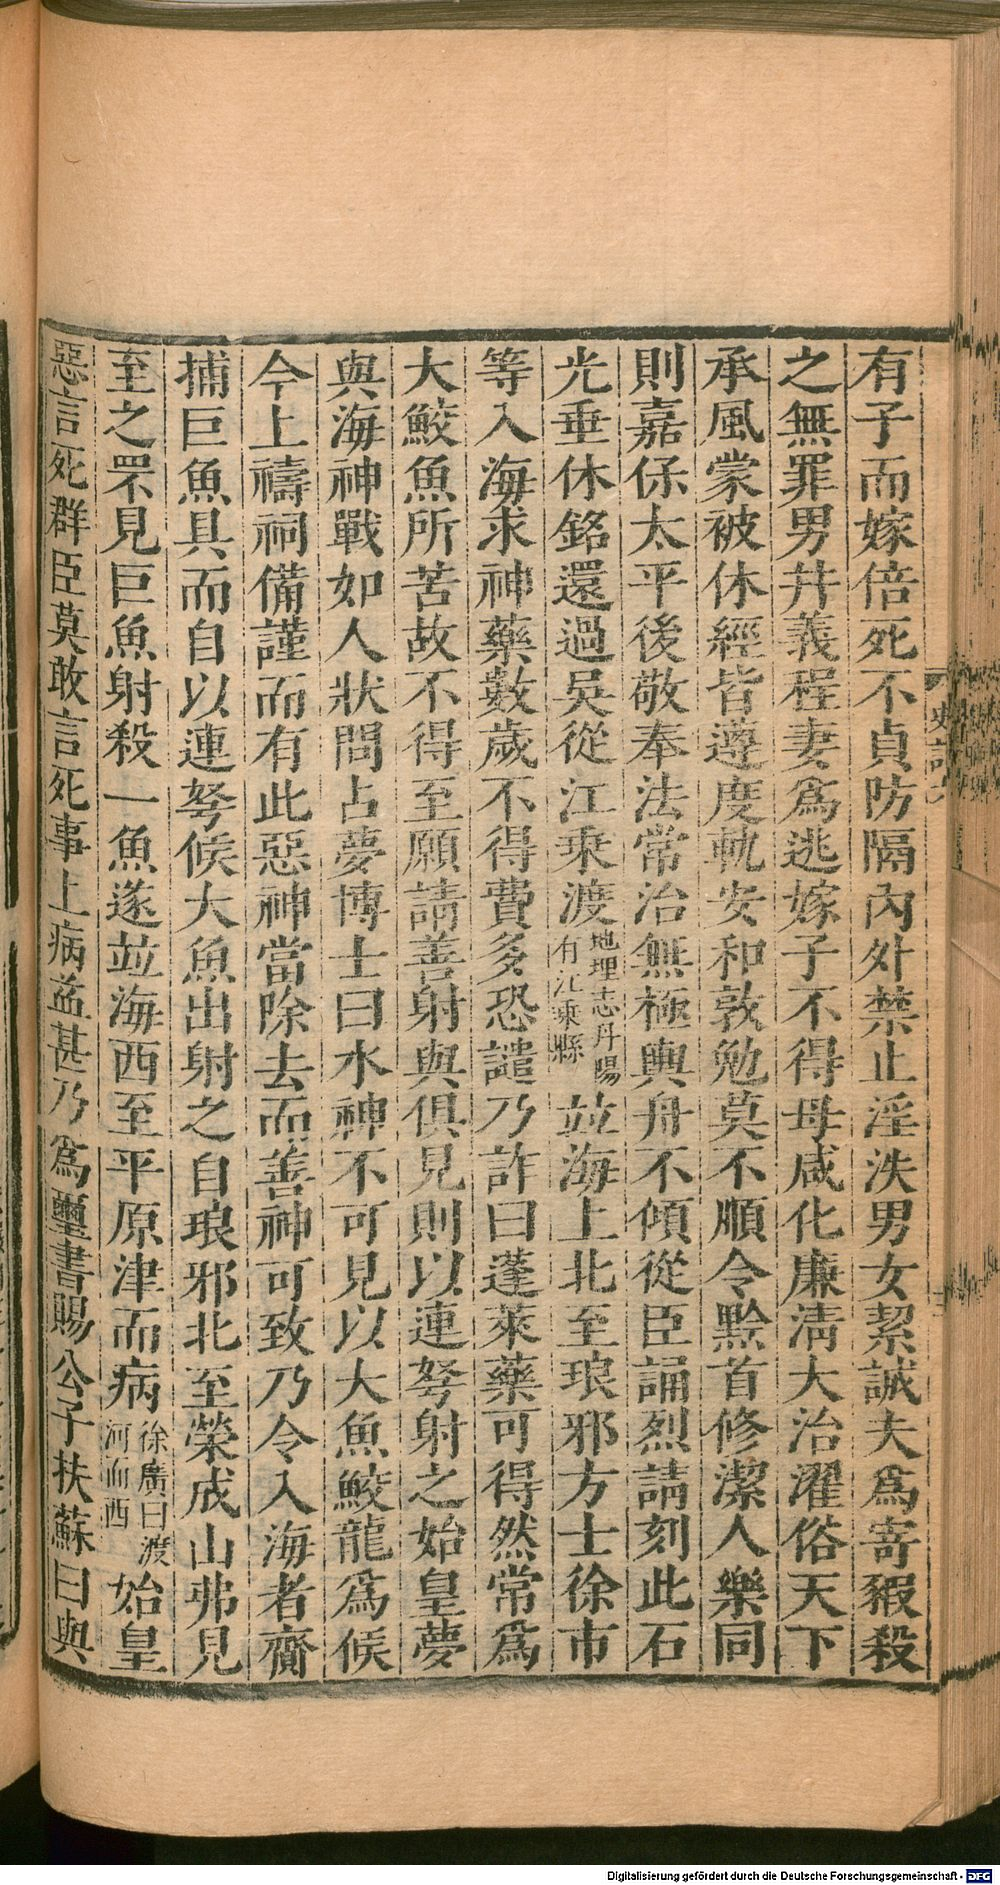 有子而嫁倍死不貞防隔內外禁止淫泆男女絜誠夫爲寄豭殺
之無罪男井義程妻爲逃嫁子不得母咸化廉淸大治濯俗天下
承風蒙被休經皆遵度軌安和敦勉莫不順令黔首修潔人樂同
則嘉保太平後敬奉法常治無極輿舟不傾從臣誦烈請刻此石
光垂休銘還過吳從江乗渡地理志丹陽有江乗縣並海上北至琅邪方士徐市
等入海求神藥數歲不得費多恐譴乃詐曰蓬萊藥可得然常爲
大鮫魚所苦故不得至願請善射與俱見則以連弩射之始皇夢
與海神戰如人狀問占夢博士曰水神不可見以大魚鮫龍爲候
今上禱祠備謹而有此惡神當除去而善神可致乃令入海者齎
捕巨魚具而自以連弩候大魚出射之自琅邪北至榮成山弗見
至之罘見巨魚射殺一魚遂並海西至平原津而病徐廣曰渡河而西始皇
惡言死群臣莫敢言死事上病益甚乃爲璽書賜公子扶蘇曰與
史記
Digitalisierung gefördert durch die Deutsche Forschungsgemeinschaft - DFG